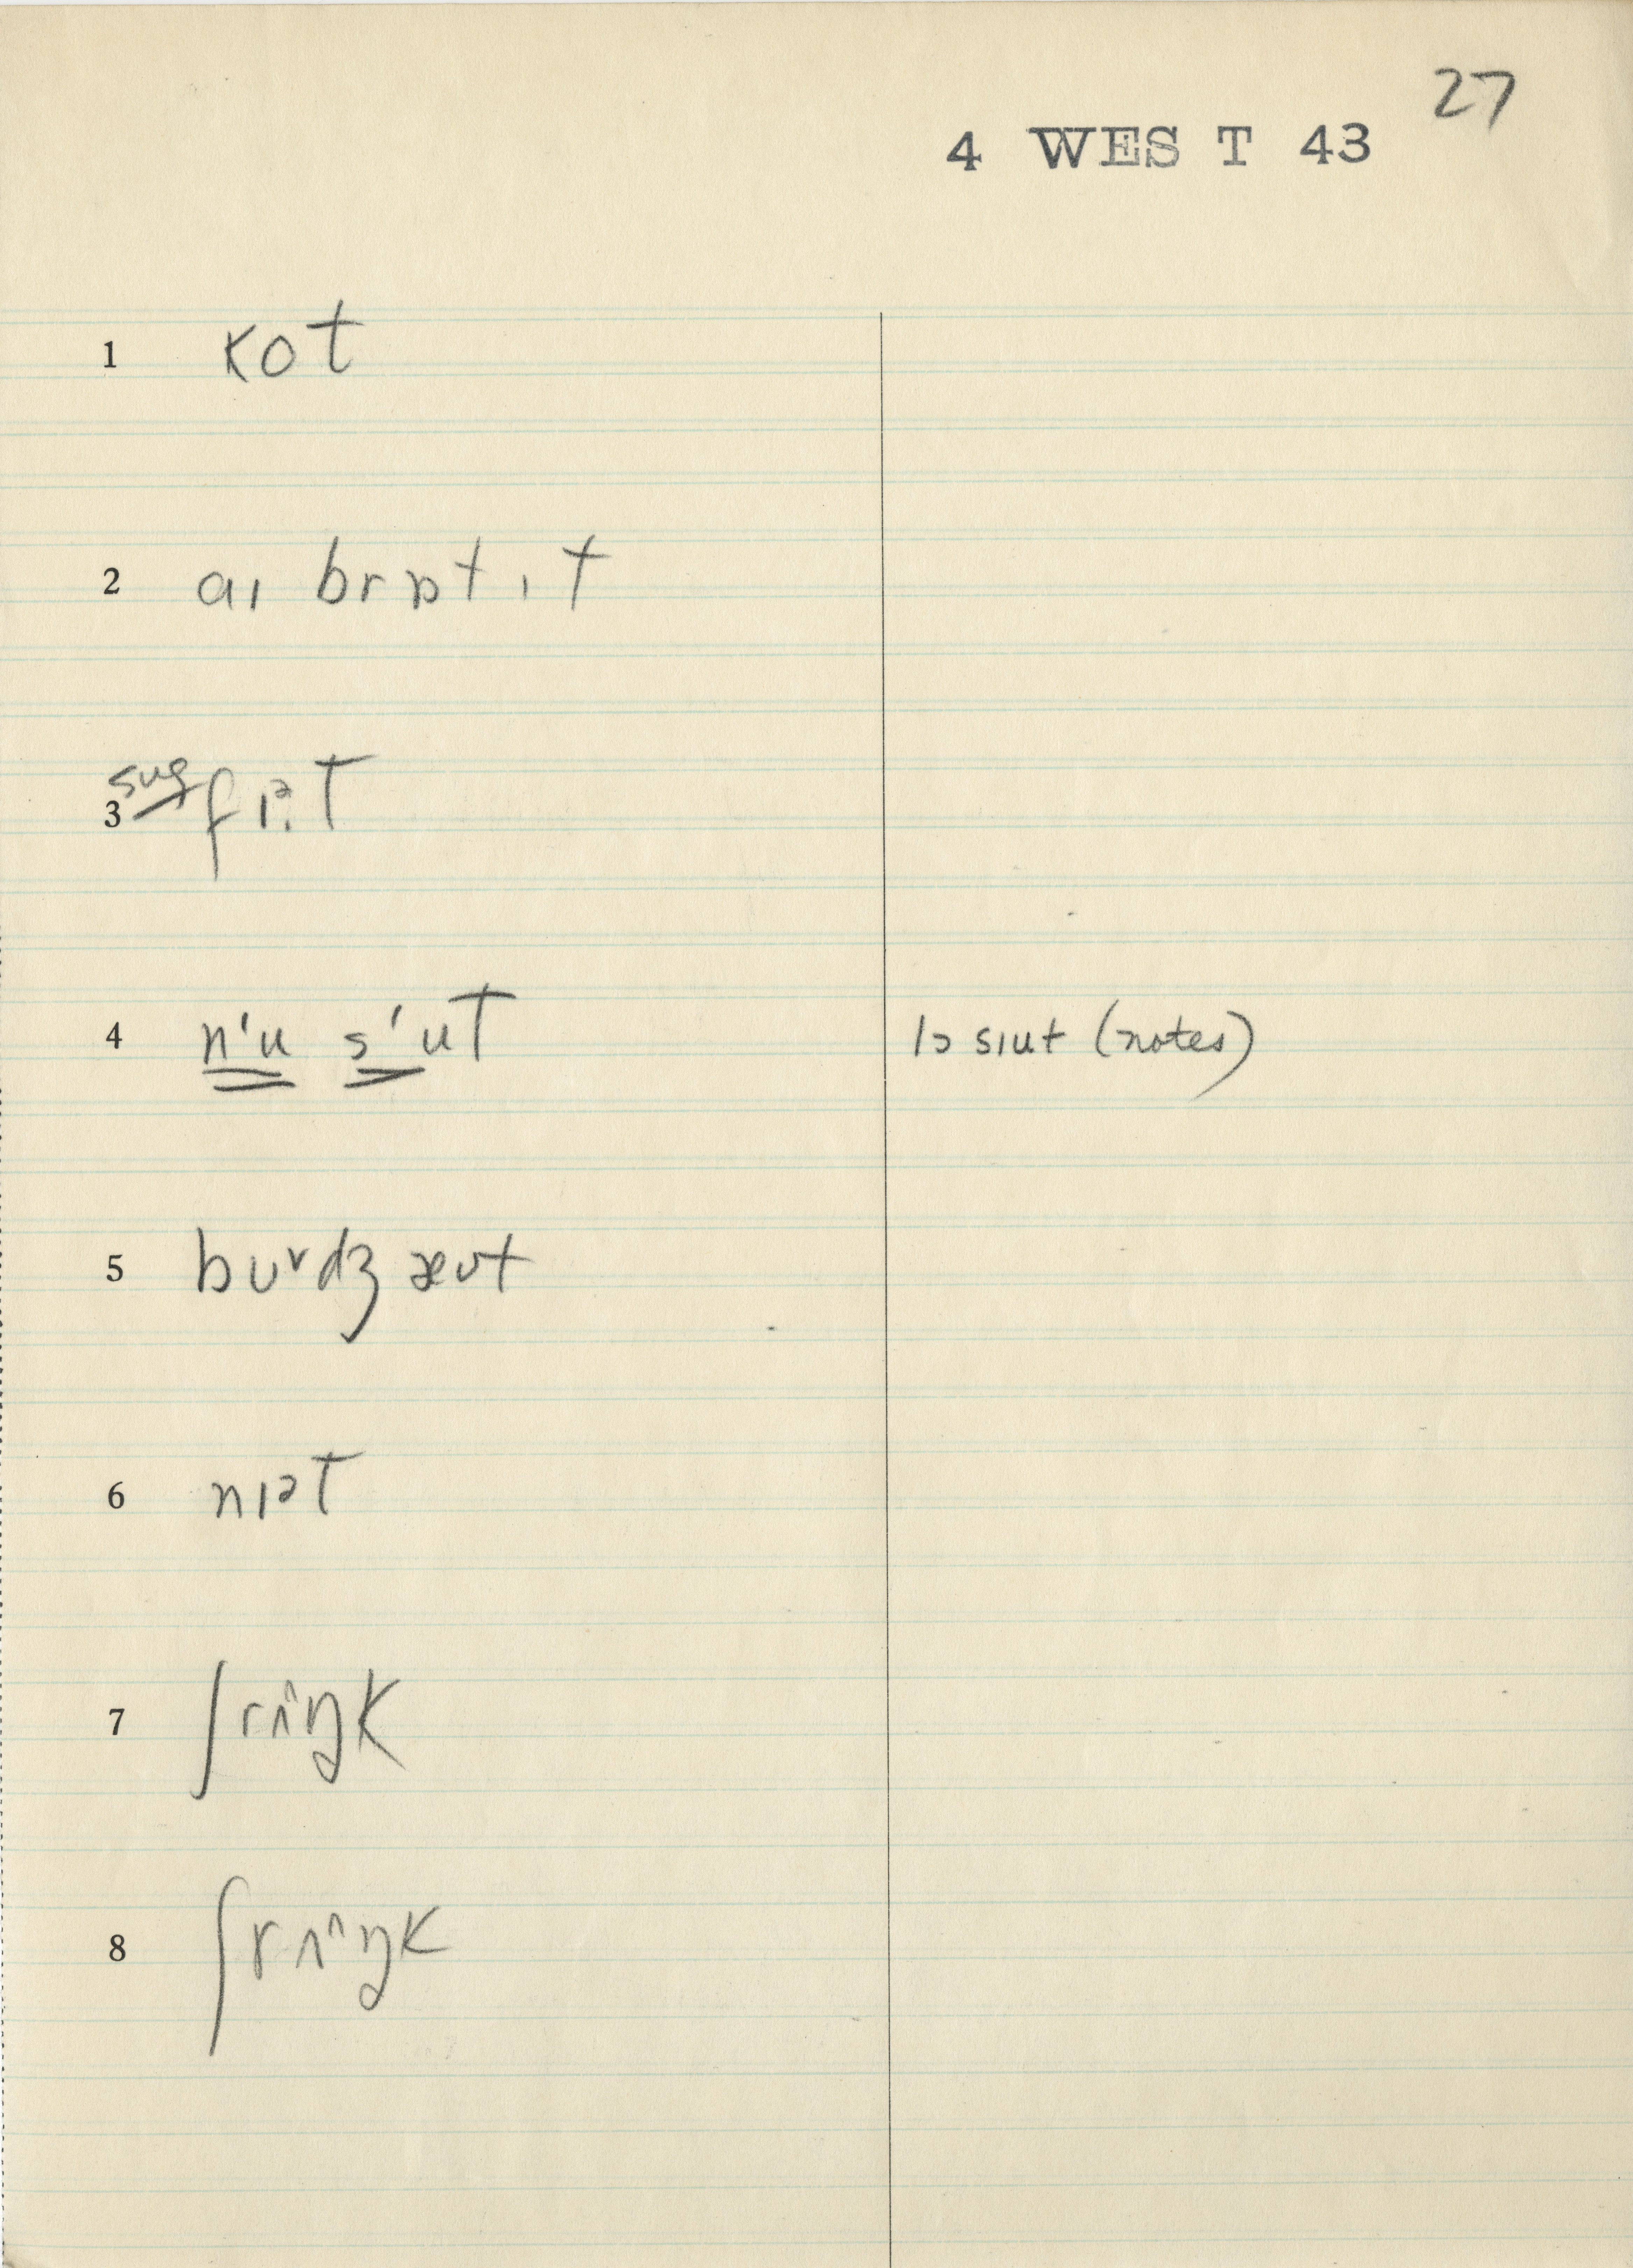 27
4 WEST 43
1 kot
2 aɪ brɒt ɪt
3 sug fɪᵊ.t
4 nᶦu sᶦut
lɔ sɪut (notes)
5 bʊrdʒ æʊt
6 nɪᵊt
7 ʃrʌ^ŋk
8 ʃrʌ^ŋk